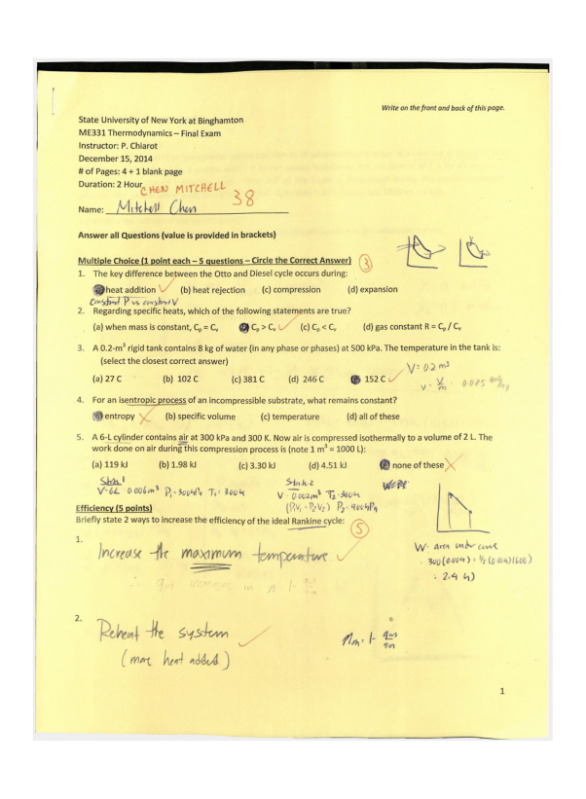 Write on the front and back of this page.
State University of New York at Binghamton
ME331 Thermodynamics – Final Exam
Instructor: P. Chiarot
December 15, 2014
# of Pages: 4 + 1 blank page
Duration: 2 Hour
CHEN MITCHELL
38
Name: Mitchell Chen
Answer all Questions (value is provided in brackets)
Multiple Choice (1 point each – 5 questions – Circle the Correct Answer) 3
1. The key difference between the Otto and Diesel cycle occurs during:
heat addition (b) heat rejection (c) compression (d) expansion
Constant P vs constant V
2. Regarding specific heats, which of the following statements are true?
(a) when mass is constant, Cp = Cv Cp > Cv (c) Cp < Cv (d) gas constant R = Cp / Cv
3. A 0.2-m³ rigid tank contains 8 kg of water (in any phase or phases) at 500 kPa. The temperature in the tank is:
(select the closest correct answer)
V = 0.2 m³
(a) 27 C (b) 102 C (c) 381 C (d) 246 C 152 C
v = V/m = 0.025
4. For an isentropic process of an incompressible substrate, what remains constant?
entropy (b) specific volume (c) temperature (d) all of these
5. A 6-L cylinder contains air at 300 kPa and 300 K. Now air is compressed isothermally to a volume of 2 L. The
work done on air during this compression process is (note 1 m³ = 1000 L):
(a) 119 kJ (b) 1.98 kJ (c) 3.30 kJ (d) 4.51 kJ none of these
State 1 State 2
V=6L 0.006m³ P₁=300kPa T₁=300k V=0.002m³ T₂=300k
(P₁V₁=P₂V₂) P₂=900kPa
Efficiency (5 points)
Briefly state 2 ways to increase the efficiency of the ideal Rankine cycle: 5
1.
Increase the maximum temperature
W = area under curve
300(0.004) + ½(0.004)(600)
= 2.4 kJ
2.
Reheat the system
(more heat added)
1